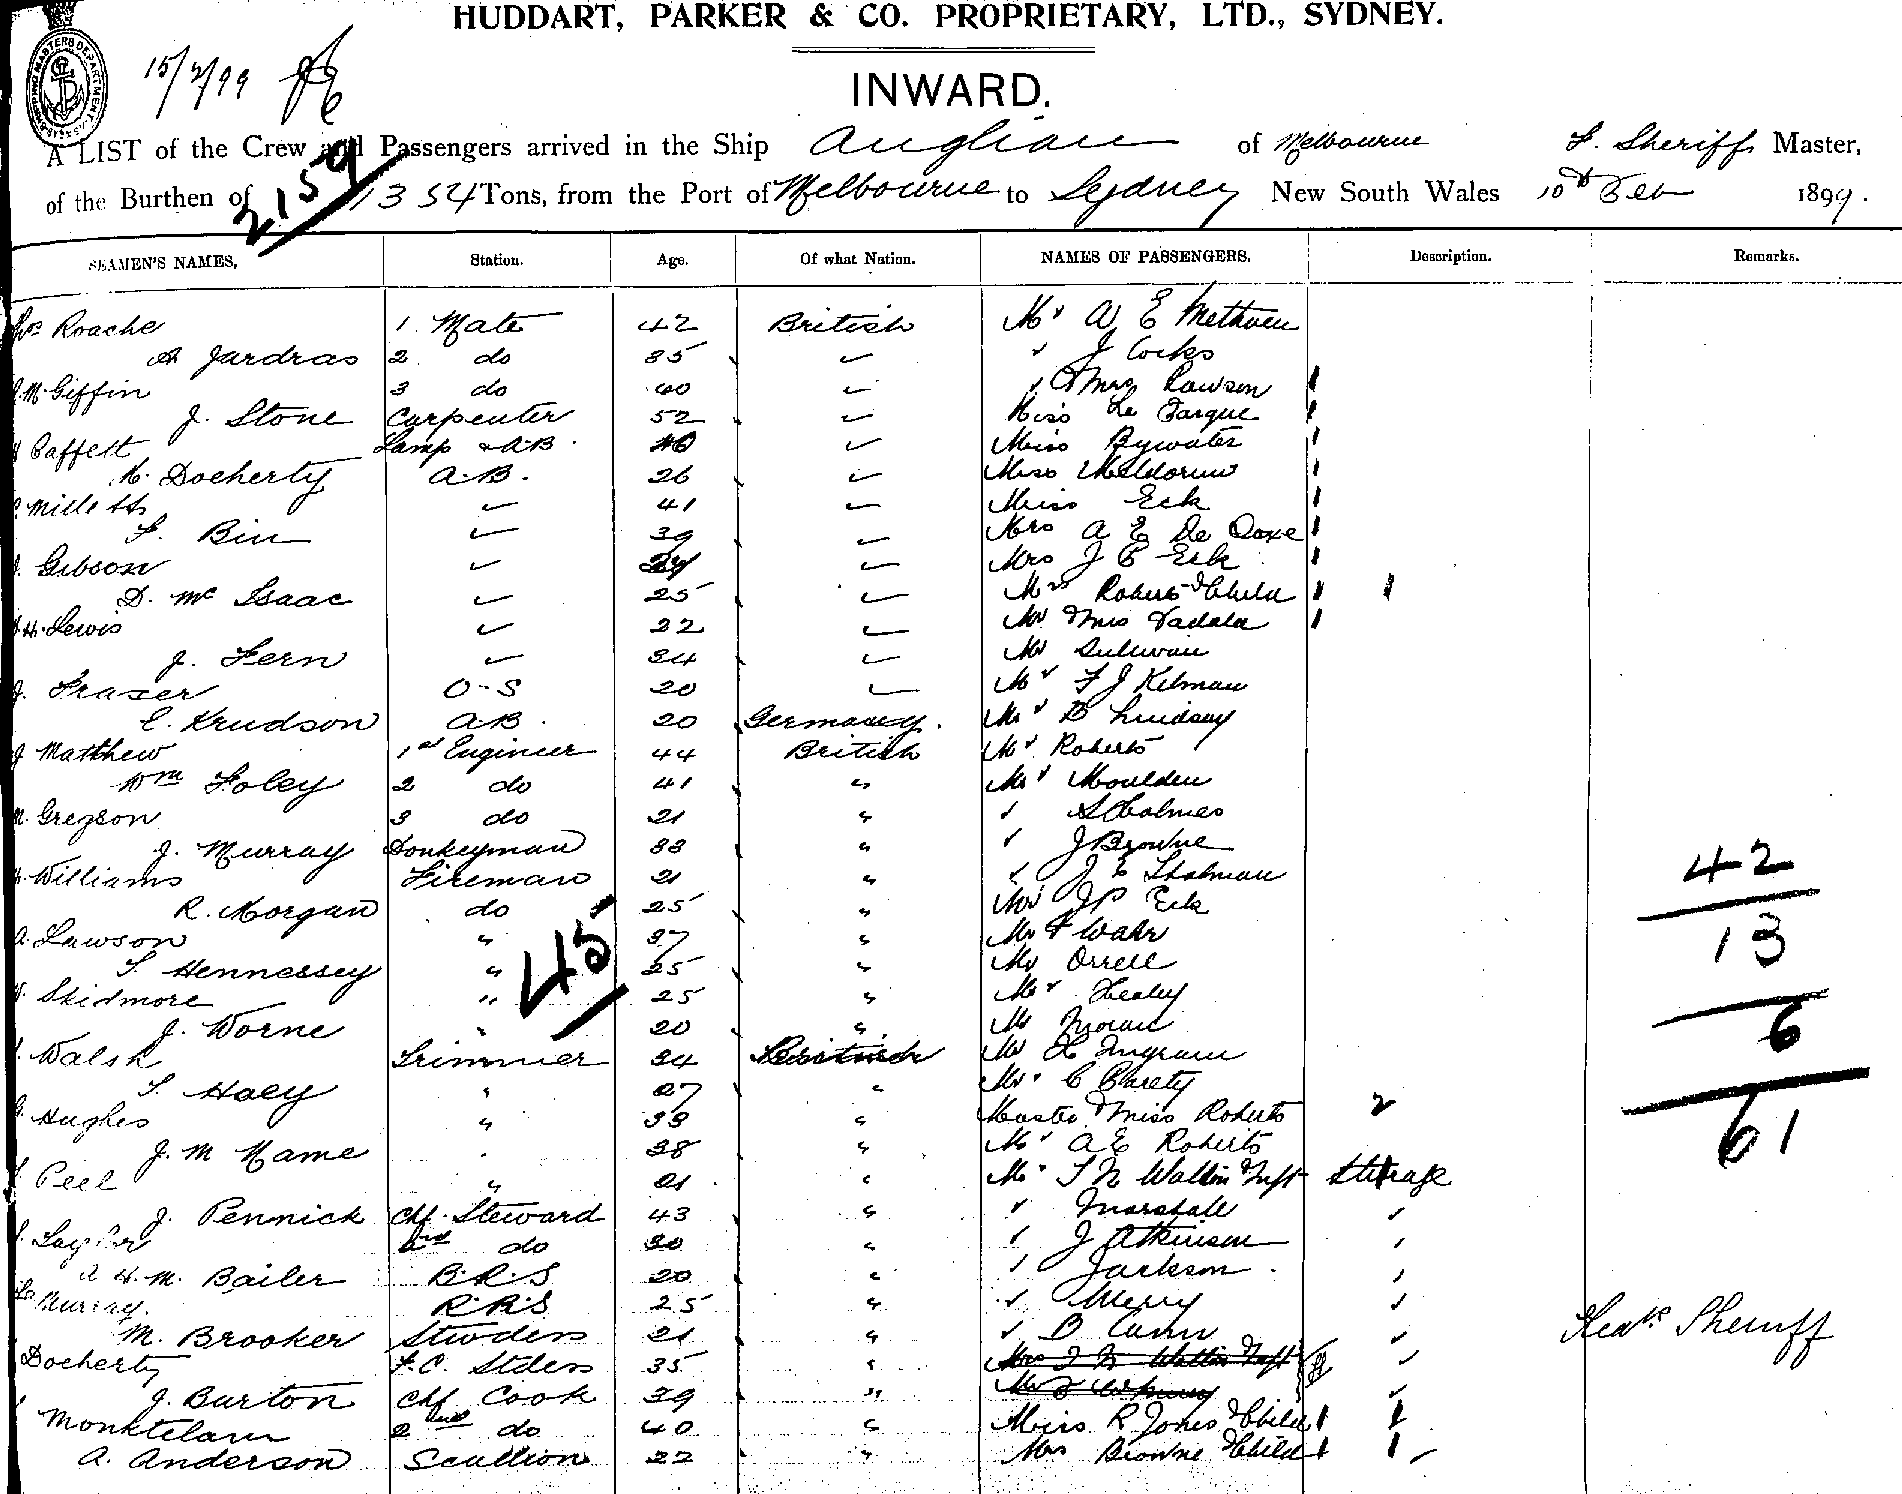 HUDDART, PARKER & CO. PROPRIETARY, LTD., SYDNEY.
15/2/99
INWARD.
A LIST of the Crew and Passengers arrived in the Ship Anglian of Melbourne F. Sheriff Master,
2159
of the Burthen of 1354 Tons, from the Port of Melbourne to Sydney New South Wales 10th Feb 1899.
SEAMEN'S NAMES, Station. Age. Of what Nation. NAMES OF PASSENGERS. Description. Remarks.
Roache 1. Mate 42 British Mr A E Methven
A Jardras 2 do 35 ✓ ✓ J Cocks
Giffin 3 do 40 ✓ ✓ & Mrs Rawson
J. Stone Carpenter 52 ✓ Miss Le Fargue
Paffett Lamp & AB 40 ✓ Miss Bywater
Docherty A.B. 26 ✓ Miss Meldorum
✓ 41 ✓ Miss Eck
Bin ✓ 39 ✓ Mrs A E De
J. Gibson ✓ ✓ Mrs J P Eck
D. Mc Isaac ✓ 25 ✓ Mrs Roberts & Child
H. Lewis ✓ 22 ✓ Mr & Mrs
J. Fern ✓ 34 ✓ Mr Sullivan
J. Fraser O-S 20 ✓ Mr F J Kelman
C. Knudson A.B. 20 Germany. Mr B Lindsay
J Matthew 1st Engineer 44 British Mr Roberts
Wm Foley 2 do 41 " Mr Moulden
Gregson 3 do 21 " ✓ S Holmes
J. Murray Donkeyman 33 " ✓ J Browne
Williams Fireman 21 " ✓ J E Thalman
42
R. Morgan do 25 " Mr J P Eck
A. Lawson " 37 " Mr F Wahr
13
45
Hennessey " 25 " Mr Orrell
Skidmore " 25 " Mr Healey
J. Worne " 20 " Mr Moran
6
Walsh Trimmer 34 British Mr H Ingram
" 27 " Mr C
Hughes " 33 " Master & Miss Roberts 2
61
J. M 38 " Mr A E Roberts
Peel " 21 " Mr Steerage
J. Pennick Chf. Steward 43 " ✓ Marshall ✓
2nd do 30 " ✓ J Atkinson
A H. M. Bailer B.R.S 20 " ✓ Jackson
Murray. R.B.S 25 " ✓ Merry ✓
M. Brooker Stwdess 21 " ✓ ✓
Sheriff
Docherty F.C. Stdess 35 " ✓
J. Burton Chf Cook 39 " ✓
2nd do 40 " Miss R Jones & Child
A. Anderson Scullion 22 " Mrs Browne & Child